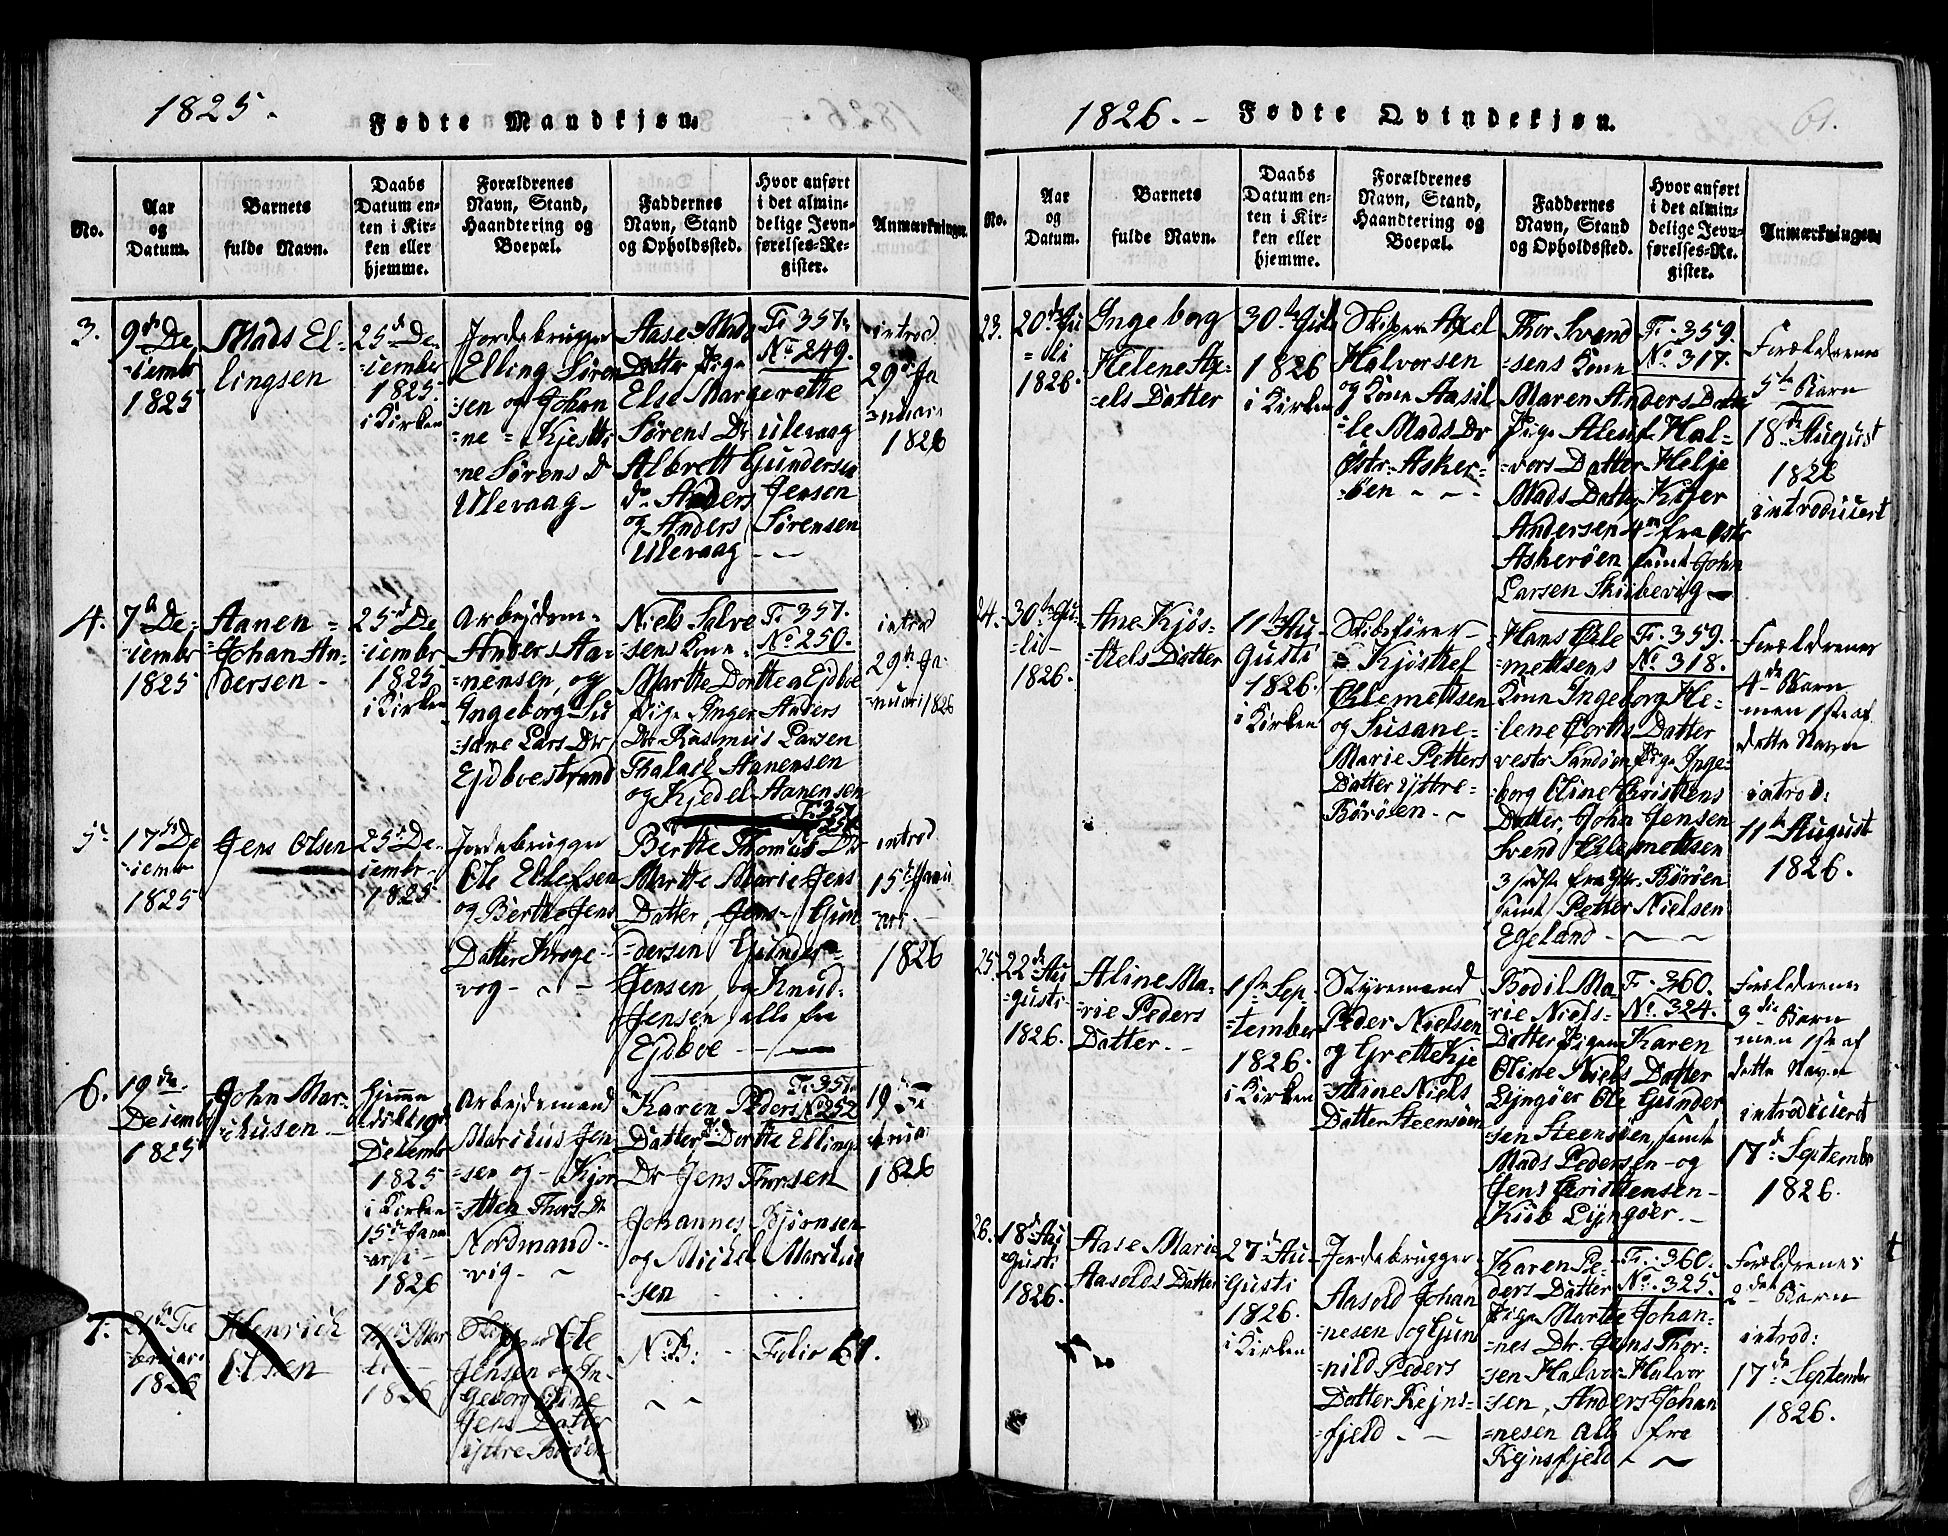 1825.
Fødte Mandkjøn.
No.
Aar
og
Datum.
Barnets
fulde Navn.
Daabs
Datum en-
ten i Kir-
ken eller
hjemme.
Forældrenes
Navn, Stand,
Haandtering og
Boepæl.
Faddernes
Navn, Stand
og Opholdssted.
Hvor anført
i det almin-
delige Jevn-
førelses-Re-
gister.
Anmærkninger.
3.
9de De-
=cembr
1825
Mads El-
lingsen
25de De-
=cember
1825.
i Kirken
Jordebrugger
Elling Søren
=sen og Johan
=ne = Kjesti
=ne Sørens Dr
Ulevaag -
Aase Mads
Datter Pige
Else Margerette
Sørens Dr Ulevaag
Albrett Gundersen
do Anders Jensen
og Anders Sørensen
Ulevaag - -
Fr. 357.
No 249.
introd
29de Ja
=nuari
1826
4.
7de De-
=cembr
1825
Aanen =
=Johan An-
dersen -
25de De
=cembr
1825.
i Kirken
Arbejdsm=
Anders Aa-
=nensen, og
Ingeborg Su
=sane Lars Dr
Ejdboestrand
Niels Salve
sens Kone
Martte Dorttea Ejdboe
Pige Inger Anders
Dr Rasmus Larsen
Thalack Aanensen
og Kjedel Aanensen
Fr. 357.
No. 250.
introd
29de Ja-
=nuari 1826
5.
17de De
=cembr
1825
Jens Olsen
25de De-
cembr-
1825
Jordebrugger
Ole Ellefsen
og Bertte Jens
Datter Kroge-
=vog - -
Bertte Thomas Dr
Martte Marie Jens
Datter, Jens Gun
=dersen Gunder=
Jensen, og Knud-
Jensen alle fra
Ejdboe - -
Fr. 357
introd
15de Janu
=ari -
1826
6.
19de
Decemb
1825
John Mar-
=kusen -
hjemme
døbt 19de
Decembr
1825
i Kirken
15de Janu
ari -
1826
Arbejdsmand
Marckus Jen
=sen og - Kjer
=sten Thors Dr
Nordmand-
=vig - -
Karen Peders
Datter, Pi. Dortte Ellings
Dr Jens Thorsen
Johannes Bjørnsen
og Michel Marckus
=sen
Fr. 357.
No 252
19de Fe
=bruar
1826
7.
21de Fe
=bruari
1826
Henrich
Olsen
Mar-
ti -
1826
Ole
Jensen og In-
geborg Oline
Jens Datter
Yttre Borøen
N.B: - Folio 61.
1826. -
Fødte Qvindekjøn.
61.
No.
Aar
og
Datum.
Barnets
fulde Navn.
Daabs
Datum en-
ten i Kir-
ken eller
hjemme.
Forældrenes
Navn, Stand,
Haandtering og
Boepæl.
Faddernes
Navn, Stand
og Opholdssted.
Hvor anført
i det almin-
delige Jevn-
førelses-Re-
gister.
Anmærkninger.
23.
20de Ju
=li
1826.
Ingeborg
Helene Ax-
=els Datter
30te Juli
1826
i Kirken
Skipper Axel
Halvorsen
og Kone Aasil
=le Mads Dr
Østr. Asker=
=øen - -
Thor Svend
sens Kone
Maren Anders Datter
Pige Alesse Hal-
=vors Datter Helje
Mads Datter, Kitjer
Andersen 4re fra Østr
Askerøen samt John
Larsen Skibevig -
Fr. 359.
No. 317.
Forældrenes
5te Barn
18de August
1826
introduceert
24.
30te Ju-
=li -
1826.
Ane Kjøs-
=ttels Datter
11te Au-
Gusti
1826.
i Kirken
Skibsfører-
Kjøsttel
Clemettsen
og Susane-
Marie Petters
Datter yttre-
Borøen. -
Hans Cle
=mettsens
Kone Ingeborg He-
=lene Corths Datter
vestr Sandøen, Pige Inge-
borg Oline Cristtens
Datter, John Jensen
Svend Clemettsen
3 sidste fra Yttr. Borøen
samt Petter Nielsen
Egeland - - -
Fr. 359.
No. 318.
Forældrenes
4de Barn
men 1ste af
dette Navn
introd:
11te August
1826.
25.
22de Au
=gusti
1826.
Aline Ma-
=rie Peders
Datter. -
1ste Sep-
=tember
1826.
i Kirken
Styremand
Peder Nielsen
og Grette Kje
=stine Niels
Datter Steensøen
Bodil Ma-
rie Niels-
Datter Pigen Karen
Oline Niels Datter
Lyngøer Ole Gunder
=sen Steensøen, samt
Mads Pedersen - og
Jens Cristtensen-
Kiib Lyngøer. -
Fr. 360.
No. 324.
Forældrenes
9de Barn
men 1ste af
dette Navn
introduceert
17de Septembr
1826.
26.
18de Au
=gusti
1826.
Aase Marie
Aasolds Datter
27de Au-
=gusti
1826.
i Kirken
Jordebrugger
Aasold Johan
nesen og Gun
=nild Peders
Datter Kejns=
=fjeld - -
Karen Pe-
ders Datter
Pige Martte Johan-
=nes Dr. Jens Thor-
sen Halvor Halvor
=sen, Anders Johan
=nesen alle fra
Kejnsfjeld - -
Fr. 360.
No. 325.
Forældrenes
2det Barn
introd:
17de September
1826.